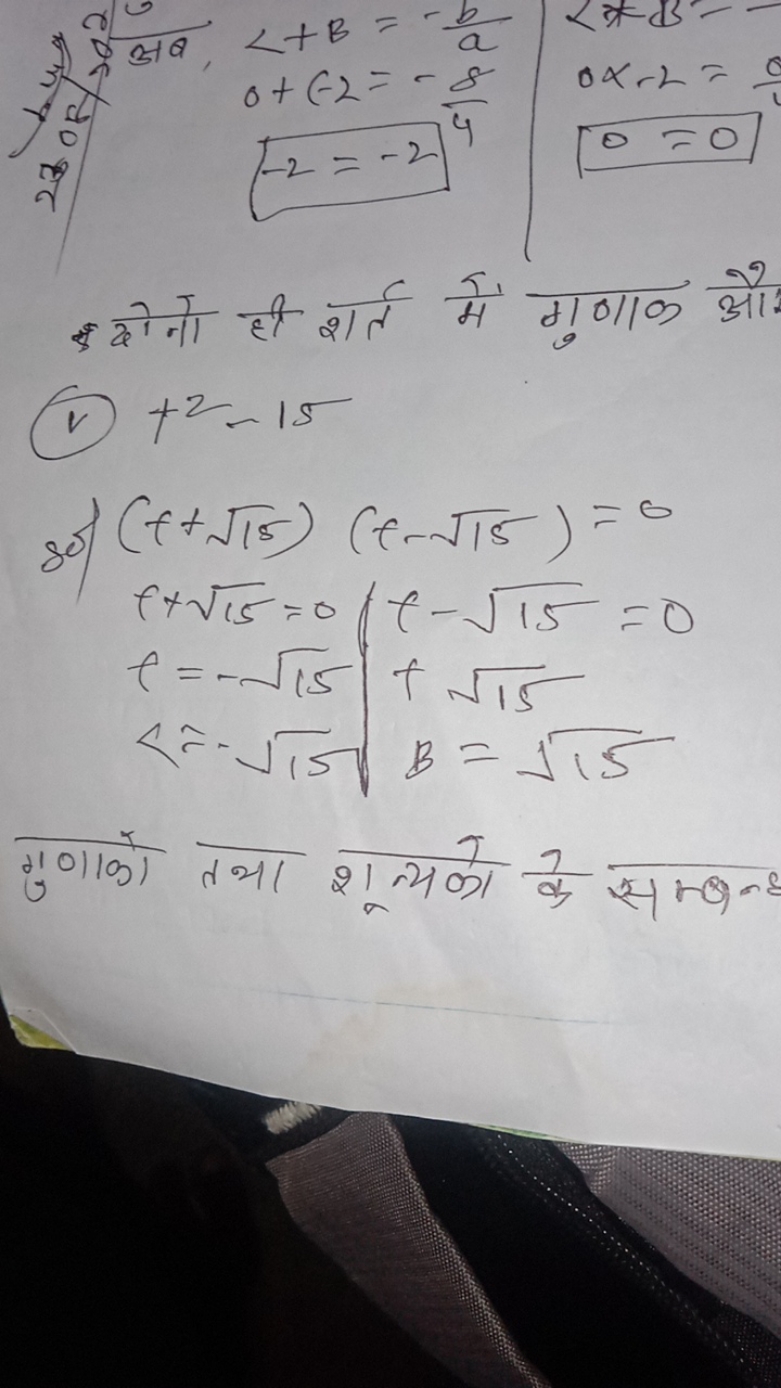 अब, <+B = -b/a
0+(-2 = -8/4
-2 = -2
<*B = -
0×-2 = 0
0 = 0
दोनो ही शर्त में गुणाक
(v) t²-15
(t+√15) (t-√15) = 0
t+√15=0 | t-√15 = 0
t=-√15 | t √15
<=-√15 | B = √15
गुणाकों तथा शून्यको के सम्बन्ध